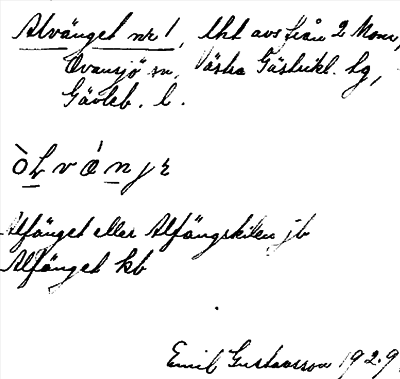 Alvänget nr 1, lht avs från 2 Mom,
Ovansjö sn, östra Gästrikl. tg,
Gävleb. l.
Alfänget eller Alfängskilen jb
Alfänget kb
Emil Gustavsson 1929